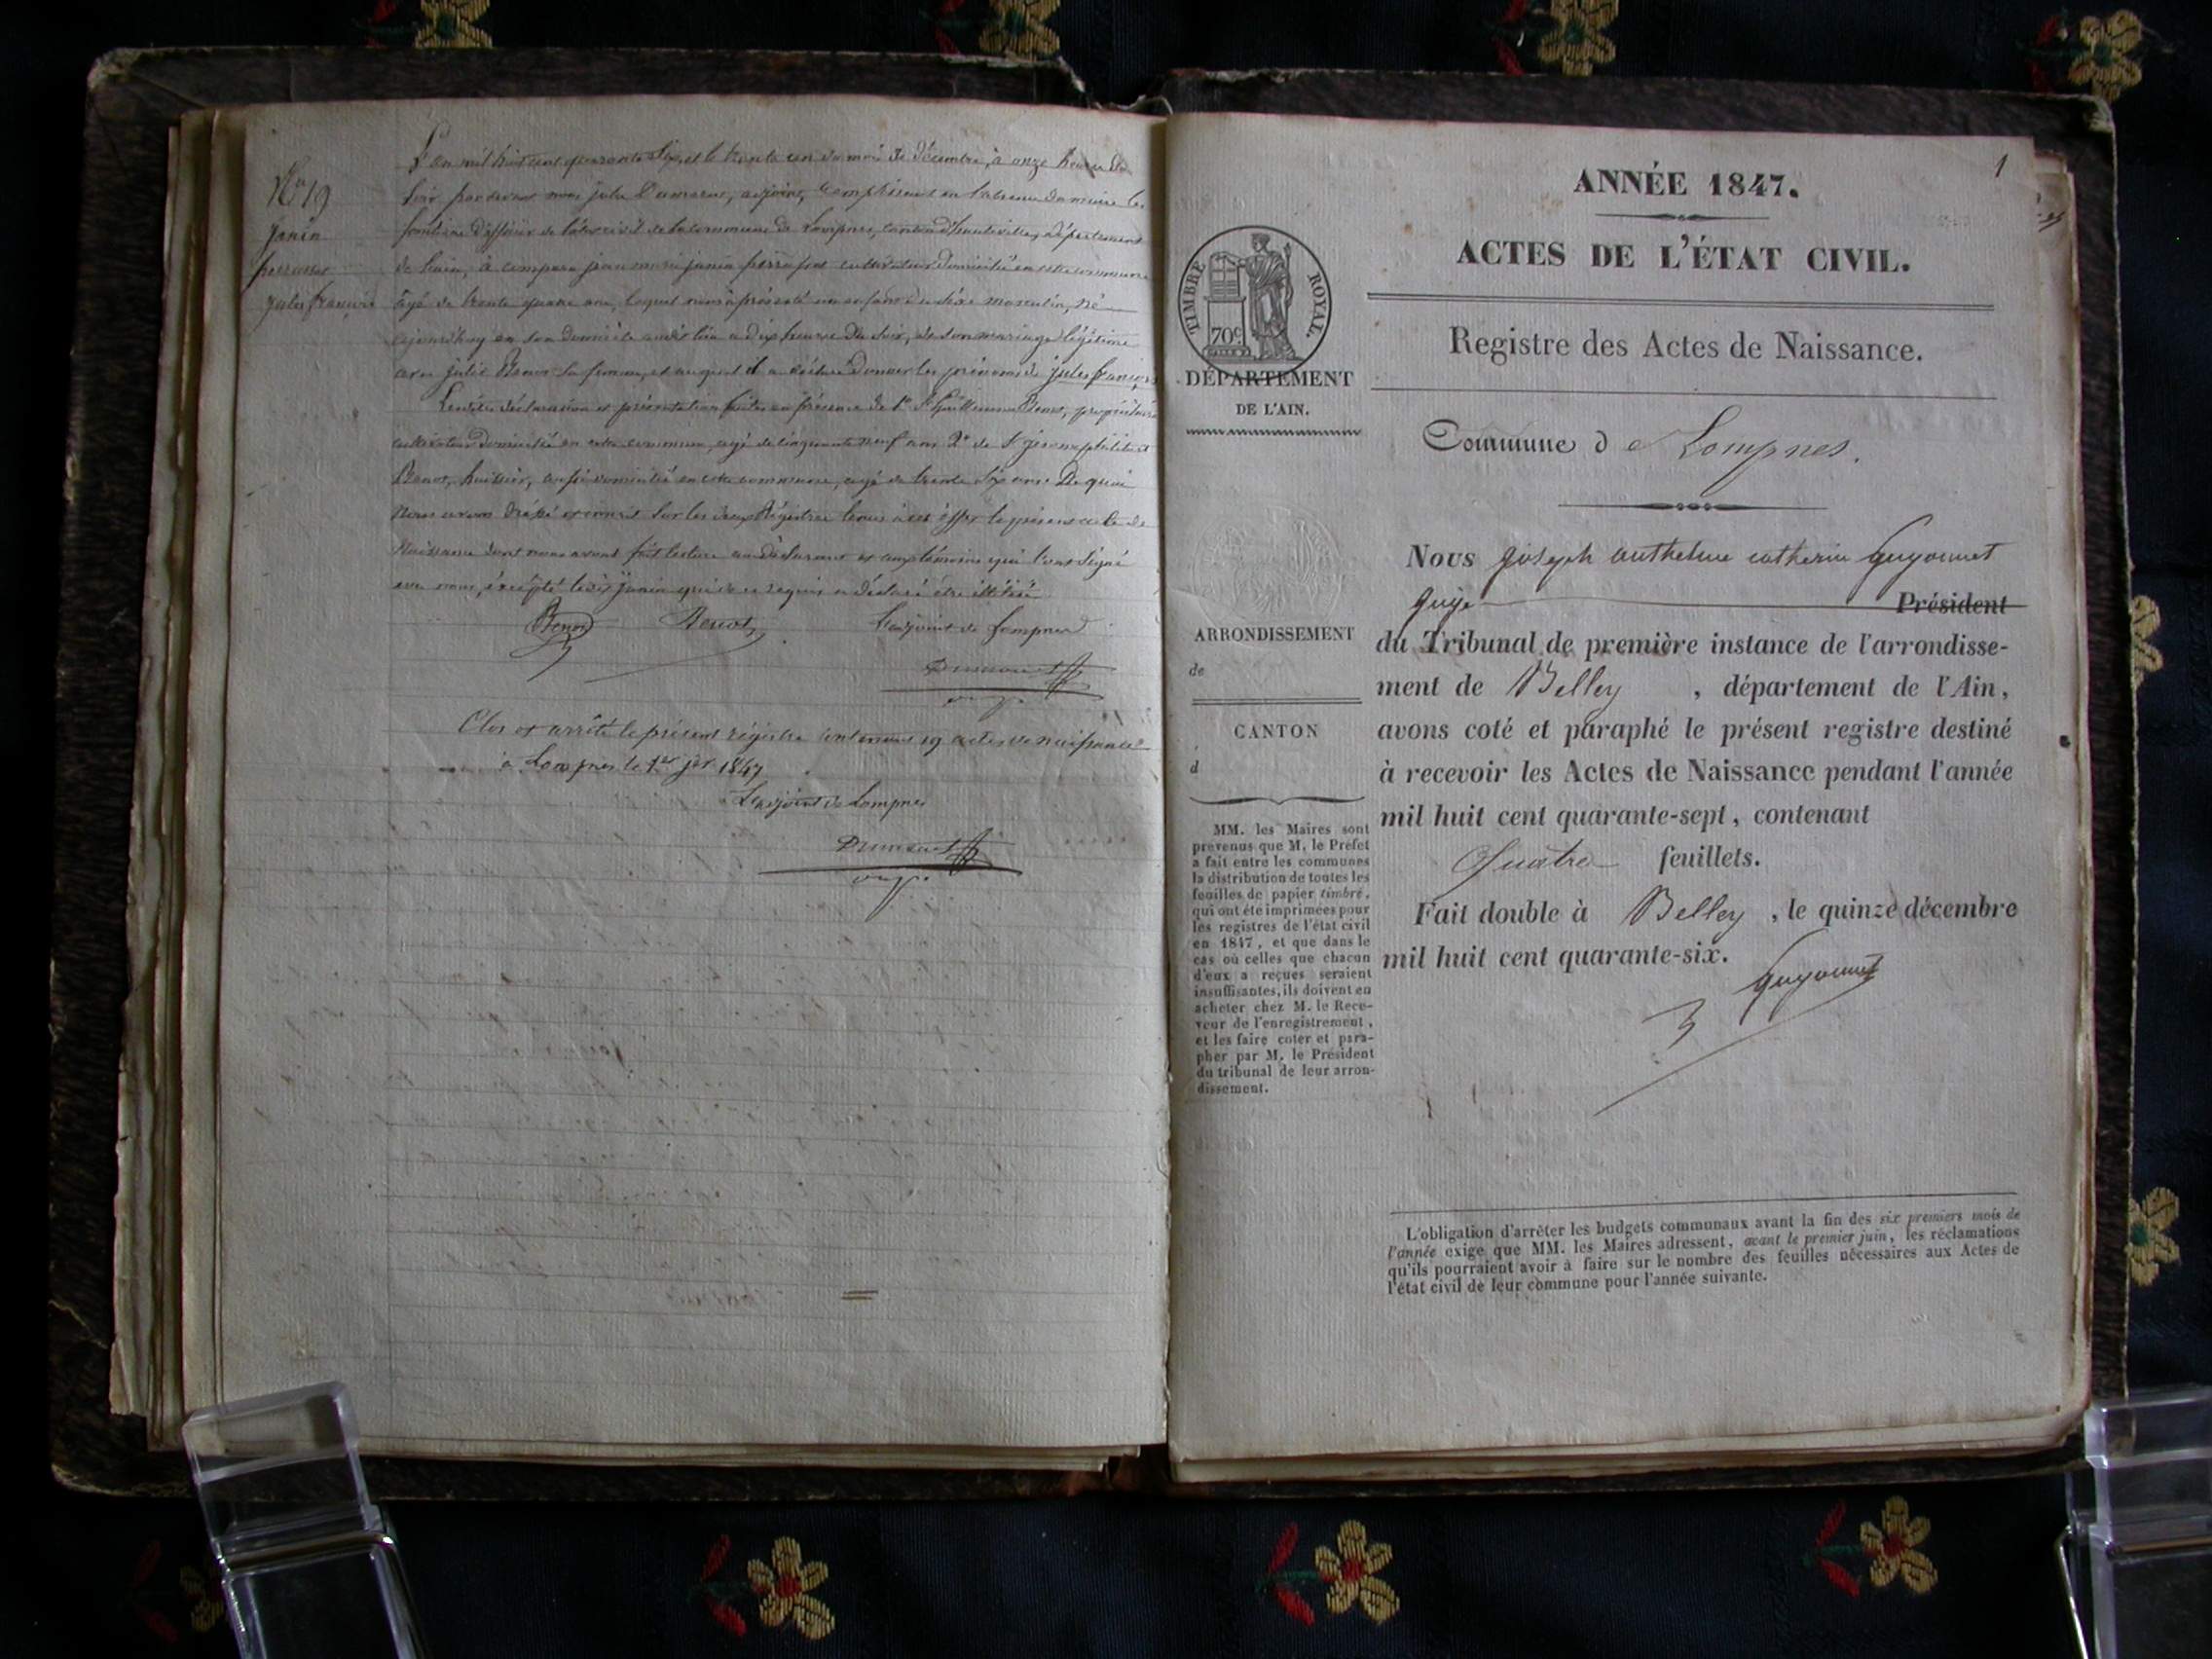 No 19
janin
perrafat
jules françois
L'an mil huit cent quarante six, et le trente un du mois de décembre, à onze heures du
soir, par devant nous jules Dumarest, adjoint, remplissant en l'absence du maire les
fonctions d'officier de l'état civil de la commune de Lompnes, canton d'hauteville, département
de l'ain, à comparu jean marie janin perrafat cultivateur domicilié en cette commune
âgé de trente quatre ans, lequel nous à présenté un enfant du sexe masculin, né
aujourd'huy en son domicile audit lieu a dix heures du soir, de son mariage légitime
avec julie Benot sa femme, et auquel il a déclaré donner les prénoms de jules françois
Lesdites déclaration et présentation faites en présence de 1° Benot, propriétaire
cultivateur domicilié en cette commune, agé de cinquante neuf ans 2° de philibert
Benot, huissier, aussi domicilié en cette commune, agé de trente six ans. De quoi
nous avons dressé et inscrit sur les deux Régistres tenus à cet effet le présent acte de
naissance dont nous avons fait lecture au déclarant et aux témoins qui l'ont signé
avec nous, excepté ledit janin qui de ce requis a déclaré être illitéré
Benot Benot L'adjoint de Lompnes
Clos et arrêté le présent régistre contenant 19 actes de naissance
à Lompnes le 1er jer 1847
L'adjoint de Lompnes
1
ANNÉE 1847.
ACTES DE L'ÉTAT CIVIL.
Registre des Actes de Naissance.
TIMBRE ROYAL.
70c
DÉPARTEMENT
DE L'AIN.
Commune de Lompnes.
ARRONDISSEMENT
de
CANTON
d
MM. les Maires sont
prévenus que M. le Préfet
a fait entre les communes
la distribution de toutes les
feuilles de papier timbré,
qui ont été imprimées pour
les registres de l'état civil
en 1847, et que dans le
cas où celles que chacun
d'eux a reçues seraient
insuffisantes, ils doivent en
acheter chez M. le Rece-
veur de l'enregistrement,
et les faire coter et para-
pher par M. le Président
du tribunal de leur arron-
dissement.
Nous joseph anthelme catherin guyonnet
juge Président
du Tribunal de première instance de l'arrondisse-
ment de Belley, département de l'Ain,
avons coté et paraphé le présent registre destiné
à recevoir les Actes de Naissance pendant l'année
mil huit cent quarante-sept, contenant
Quatre feuillets.
Fait double à Belley, le quinze décembre
mil huit cent quarante-six.
guyonnet
L'obligation d'arrêter les budgets communaux avant la fin des six premiers mois de
l'année exige que MM. les Maires adressent, avant le premier juin, les réclamations
qu'ils pourraient avoir à faire sur le nombre des feuilles nécessaires aux Actes de
l'état civil de leur commune pour l'année suivante.